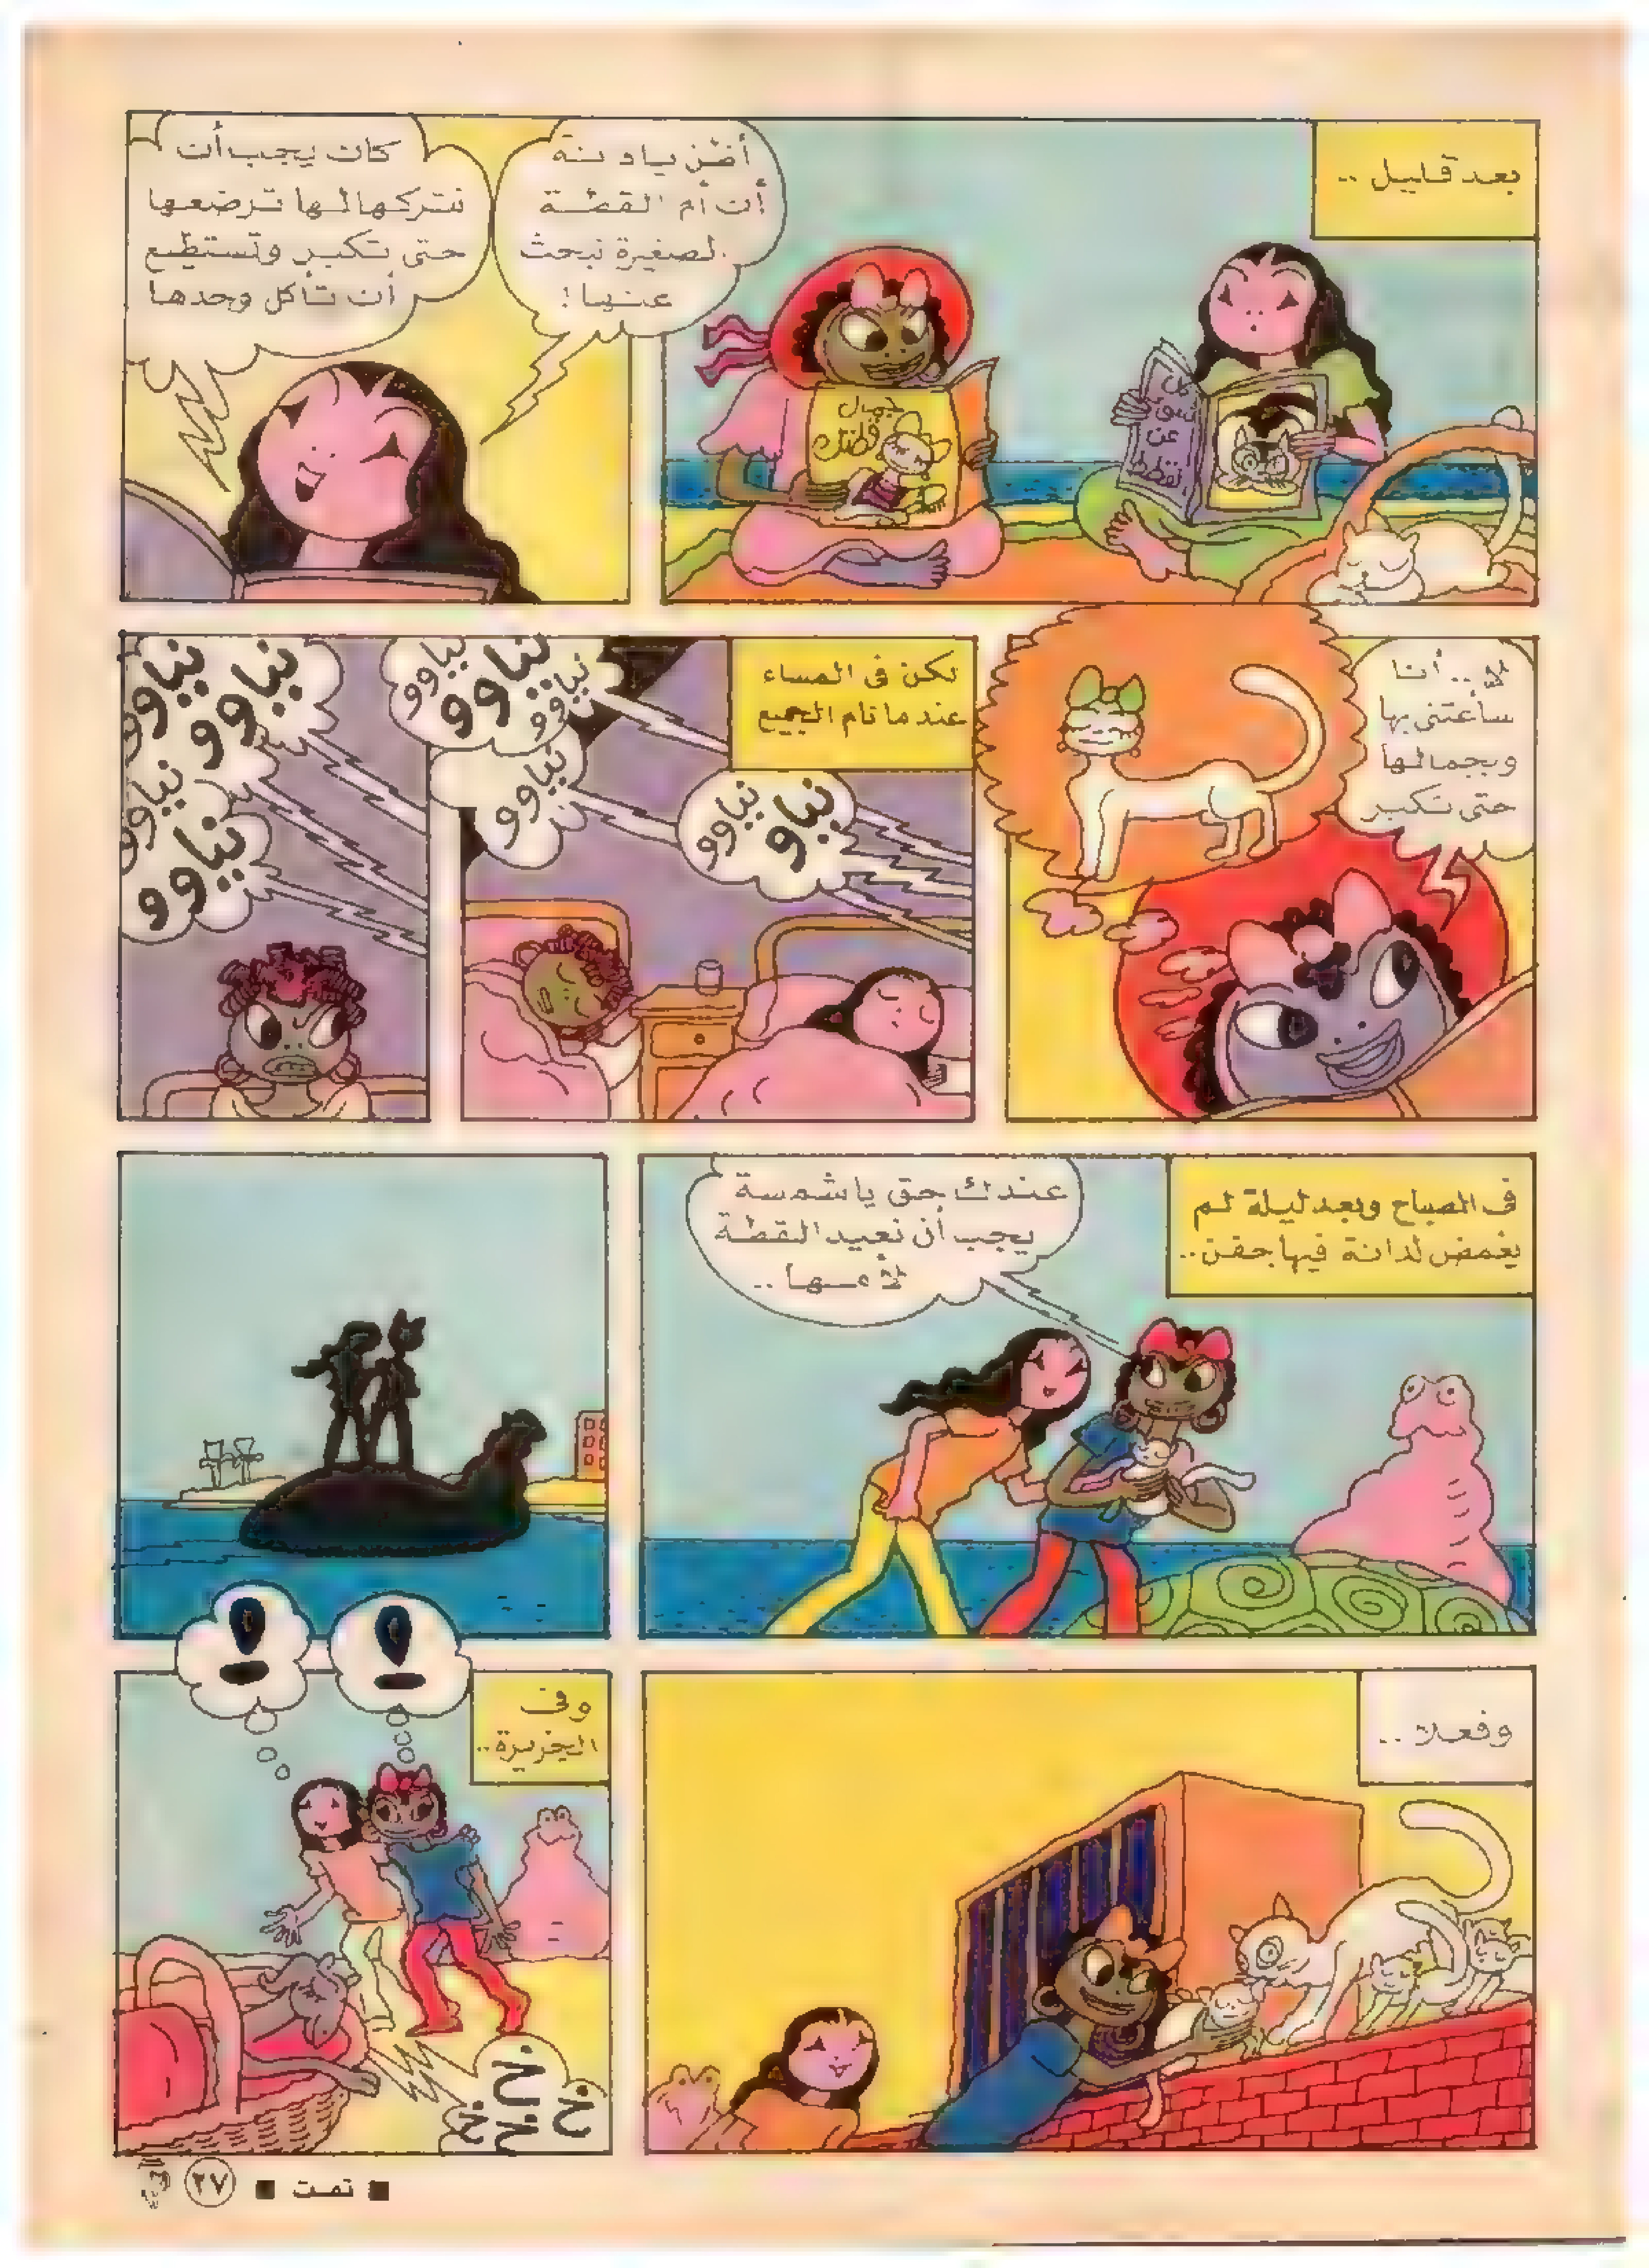 بعد قليل ..
جمال
قطتك
كل
شيء
عن
القطط
أظن يا دانة
أن أم القطة
الصغيرة تبحث
عنها !
كان يجب أن
نتركها لها ترضعها
حتى تكبر وتستطيع
أن تأكل وحدها
لا .. أنا
سأعتني بها
وبجمالها
حتى تكبر
لكن في المساء
عندما نام الجميع
نياوو
نياو
نياوو
نياوو
نياوو
نياوو
نياوو
نياوو
نياوو
نياوو
في الصباح وبعد ليلة لم
يغمض لدانة فيها جفن ..
عندك حق يا شمسة
يجب أن نعيد القطة
لأمها ..
وفعلا ..
وفي
الجزيرة ..
!
!
خ
خ
خ
خ
■ تمت ■ ٢٧